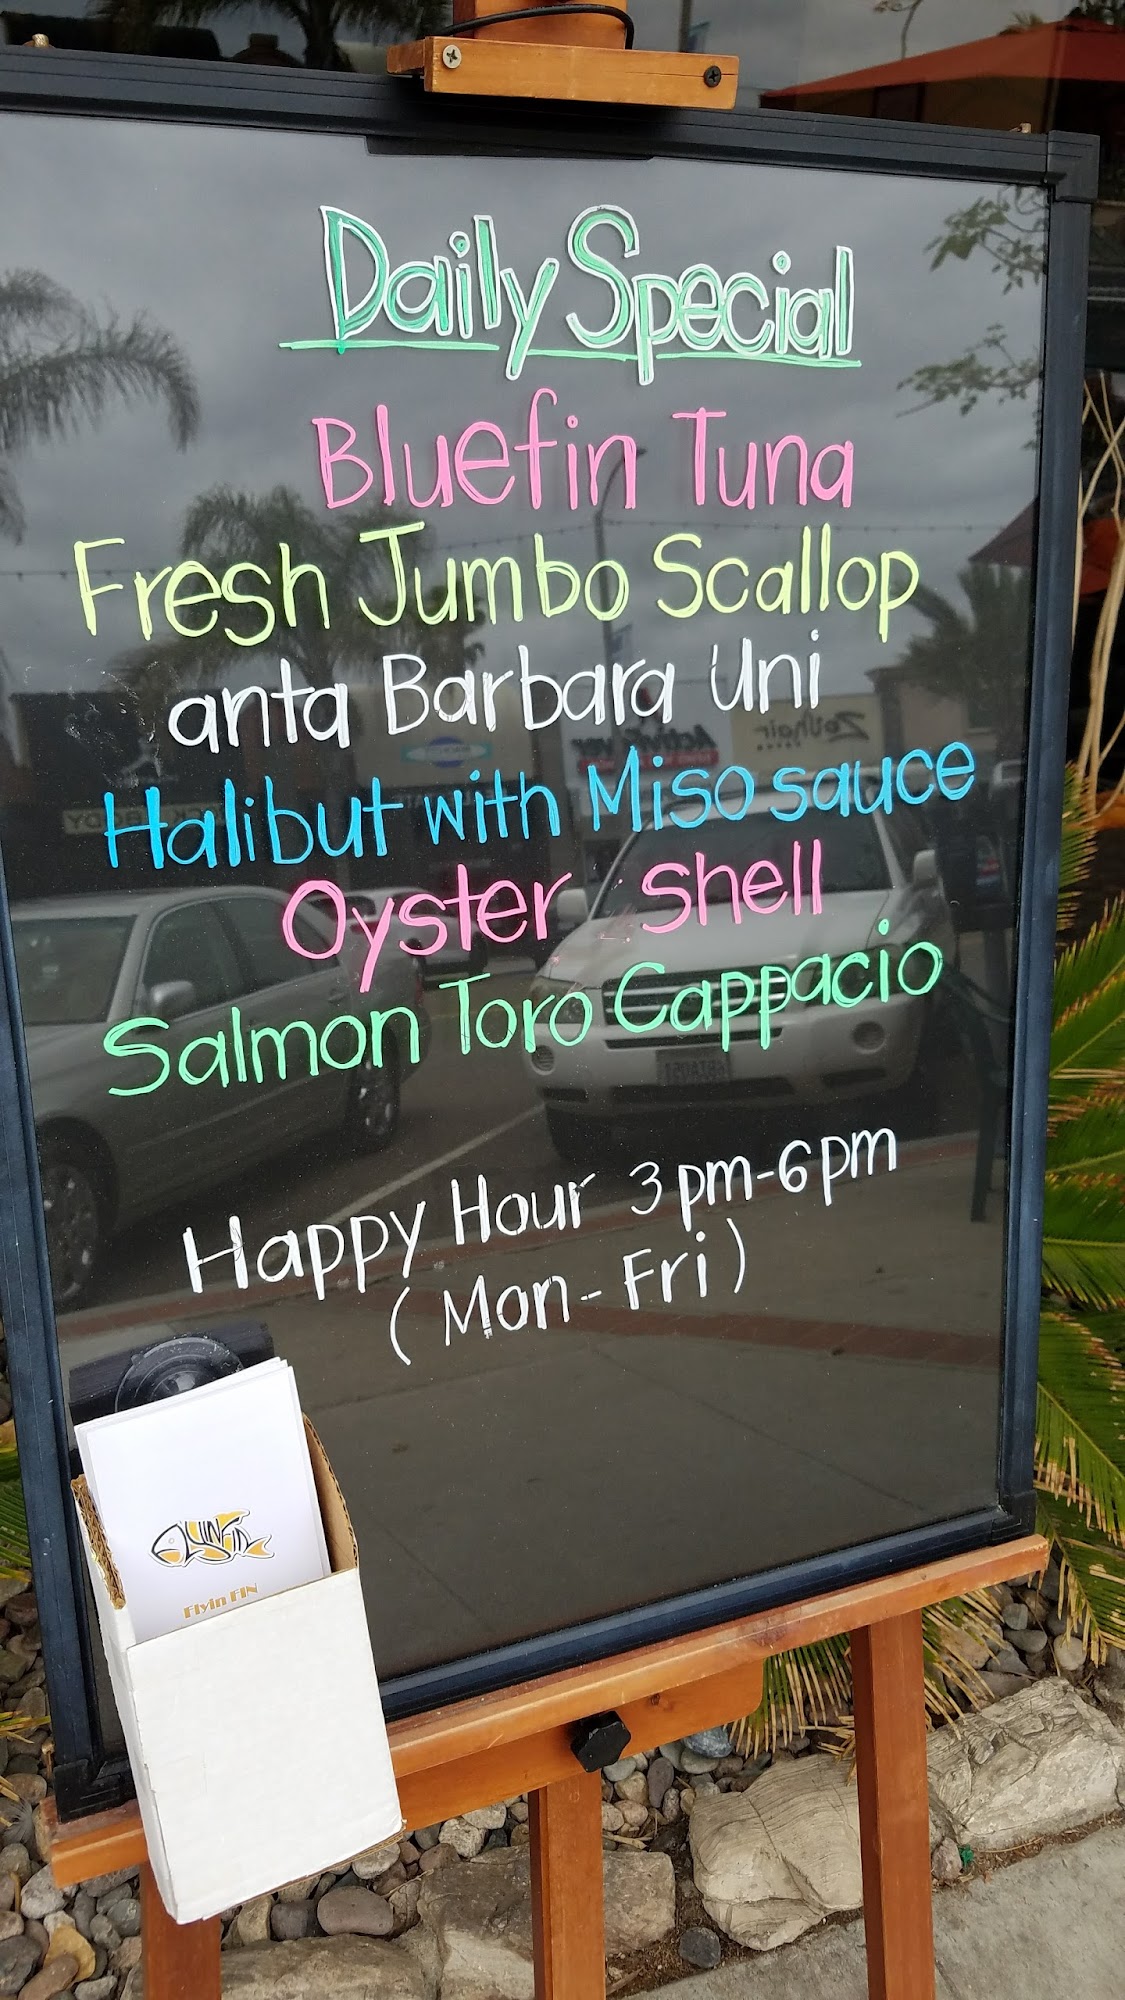 Daily Special
Bluefin Tuna
Fresh Jumbo Scallop
anta Barbara Uni
Halibut with Miso sauce
Oyster shell
Salmon Toro Cappacio
Happy Hour 3pm-6pm
(Mon-Fri)
FLYIN FIN
Flyin FIN